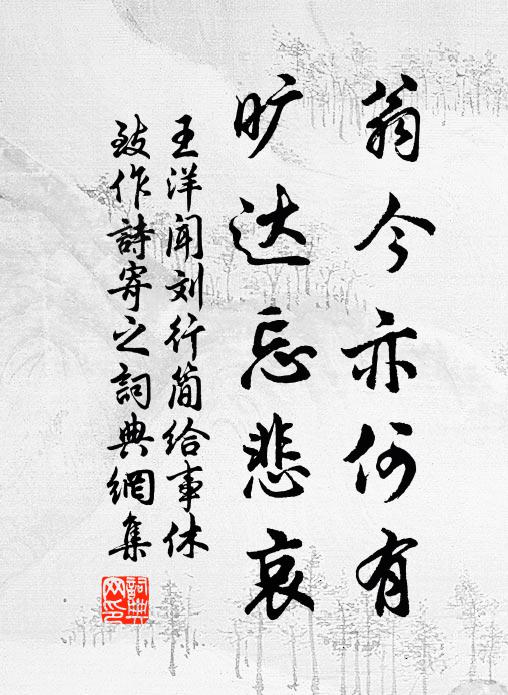 翁今亦何有
旷达忘悲哀
王洋闻刘行简给事休
致作詩寄之詞典網集